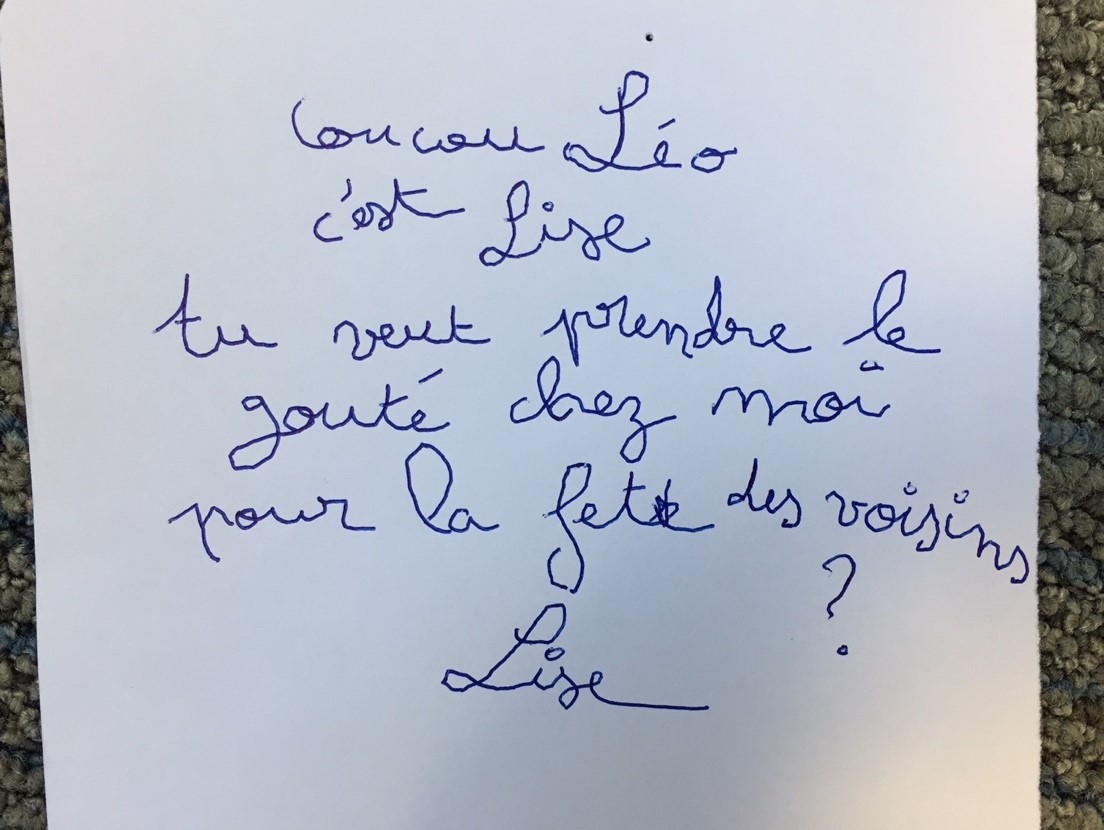 Coucou Léo
c'est Lise
tu veut prendre le
gouté chez moi
pour la fete des voisins
?
Lise